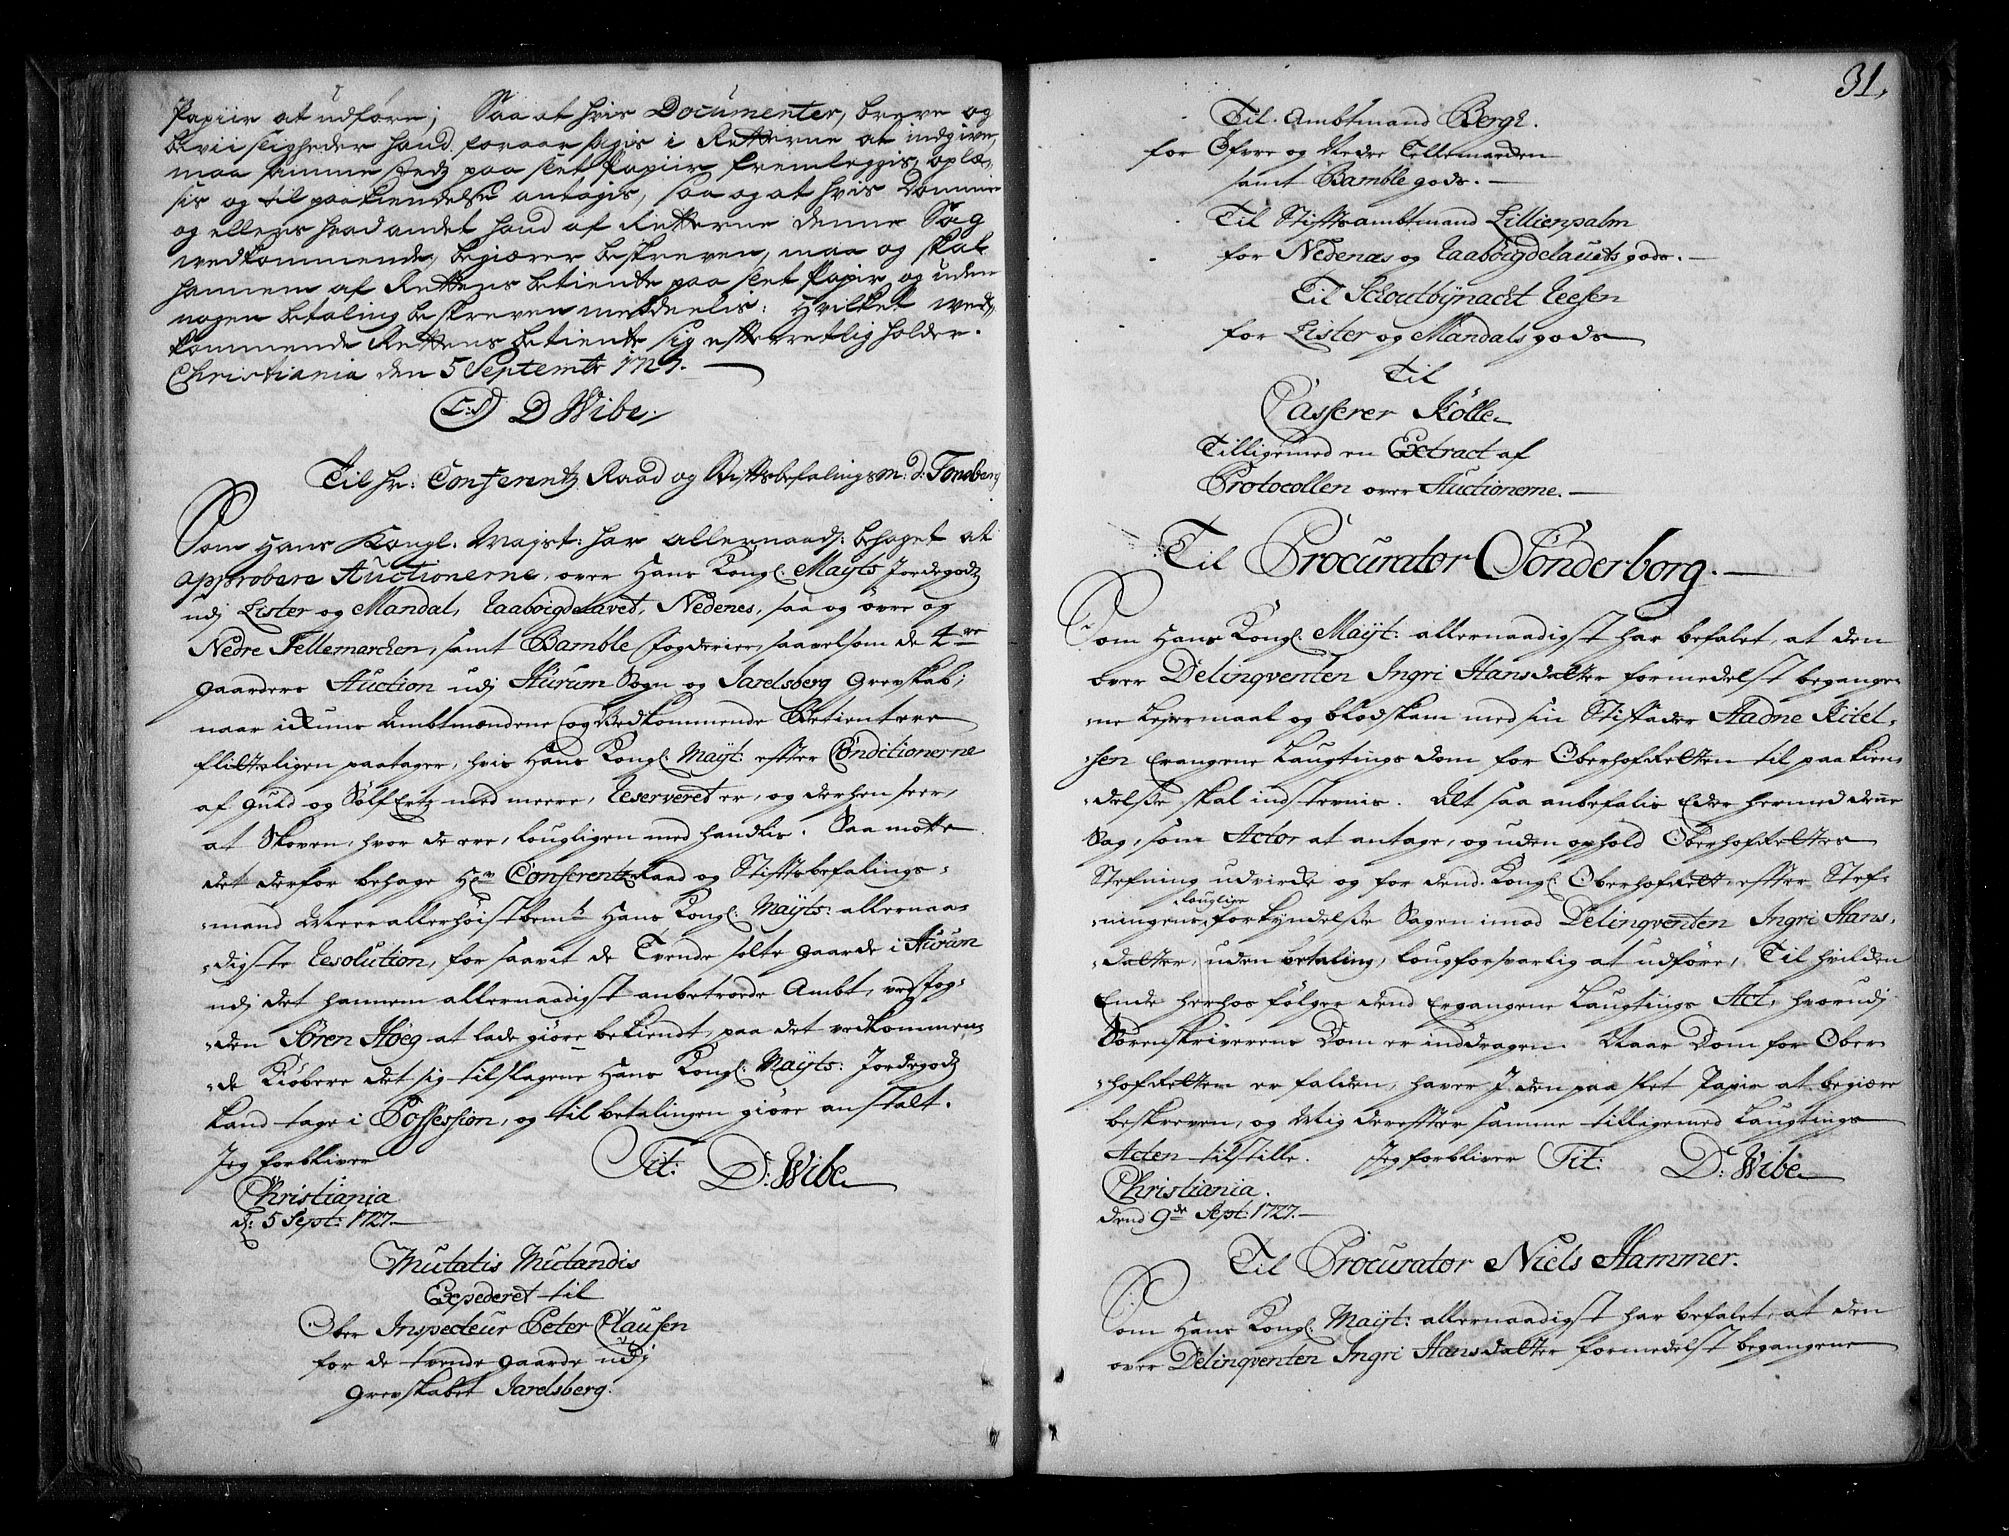 Papiir at udføre; Saa at hvis Documenter, breve og
beviisligheder hand foraarsagis i Retterne at indgive,
maa samme stedz paa slet Papiir fremleggis, oplæ-
sis og til paakiendelse antagis, saa og at hvis Domme
og ellers hvad andet hand af Retterne denne Sag
vedkommende, begiærer beskreven, maa og skal
hannem af Rettens betiente paa slet Papir og uden
nogen betaling beskreven meddeelis: Hvilket ved-
kommende Rettens betiente sig efterretlig holder.
Christiania den 5 Septembr 1727.
(L:S) D Wibe.
Til Hr: Conferentz Raad og Stiftsbefalingsm: d: Tonsberg
Som Hans Kongl. Mayst: har allernaads: behaget at
approbere Auctionerne, over Hans Kongl: Mayts Jordegodz
udj Lister og Mandal, Raabøigdelavet, Nedenes, saa og øvre og
Nedre Tellemarchen, samt Bamble fogderier, saavelsom de 4re
gaarders Auction udj Hurum Sogn og Jarlsberg Grevskab;
naar ickuns Ambtmændene og Vedkommende Betientere
flitteligen paatager, hvis Hans Kongl: Mayt: effter Conditionerne
af guld og Sølf Ertz med meere, Reserveret er, og derhen seer,
at Skoven, hvor de ere, lougligen med handlis. Saa motte
det derfor behage Hr Conferentz Raad og Stiftsbefalings-
-mand Meer allerhøistbemte Hans Kongl: Mayts: allernaa-
-digste Resolution, for saavit de Tvende solte gaarde i Hurum
udj det hannem allernaadigst anbetroede Ambt, ved fog-
-den Søren Høeg at lade giøre bekiendt, paa det vedkommen-
-de Kiøbere det sig tilslagene Hans Kongl: Mayts: Jordegodz
kand tage i Possession, og til betalingen giøre anstalt.
Jeg forbliver Tit: D: Wibe
Christiania
d: 5 Sept: 1727.
Mutatis Mutandis
Expederet til
Ober Inspecteur Peter Clausen
for de tvende gaarde udj
Grevskabet Jarlsberg.
31.
Til Ambtmand Bergh.
for Øfvre og Nedre Tellemarcken
samt Bamble gods.
Til Stiftsambtmand Lillienpalm
for Nedenæs og Raabøigdelaugts gods.
Til Schoutbÿnacht Reesen
for Lister og Mandals gods
Til
Casserer Kølle
Tilligemed en Extract af
Protocollen over Auctionerne.
Til Procurator Sönderborg.
Som Hans Kongl: Mayt: allernaadigst har befalet, at den
over Delinqventen Ingri Hansdatter formedelst begange-
-ne Leyermaal og blodskam med sin Stiffader Aadne Kitel-
-sen Ergangene Laugtings Dom for OberhofRetten til paakien-
-delse skal indstevnis. Alt saa anbefalis Eder hermed denne
Sag, som Actor at antage, og uden ophold OberhofRettes
Stefning udvirke og for dend Kongl: OberhofRett, effter Stef-
louglige
-ningens forkyndelse Sagen imod Delinqventen Ingri Hans-
-datter, uden betaling, lougforsvarlig at udføre, Til hvilcken
Ende herhos følger dend Ergangene Laugtings Act, hvorudj
Sorenskriverens Dom er inddragen. Naar Dom for Ober-
-hofRetten er falden, haver I den paa slet Papir at begiære
beskreven, og Mig dereffter samme tilligemed Laugtings
Acten tilstille. Jeg forbliver Tit: D: Wibe
Christiania.
dend 9de Sept: 1727.
Til Procurator Niels Hammer.
Som Hans Kongl: Mayt: allernaadigst har befalet, at den
over Delinqventen Ingri Hansdatter formedelst begangene